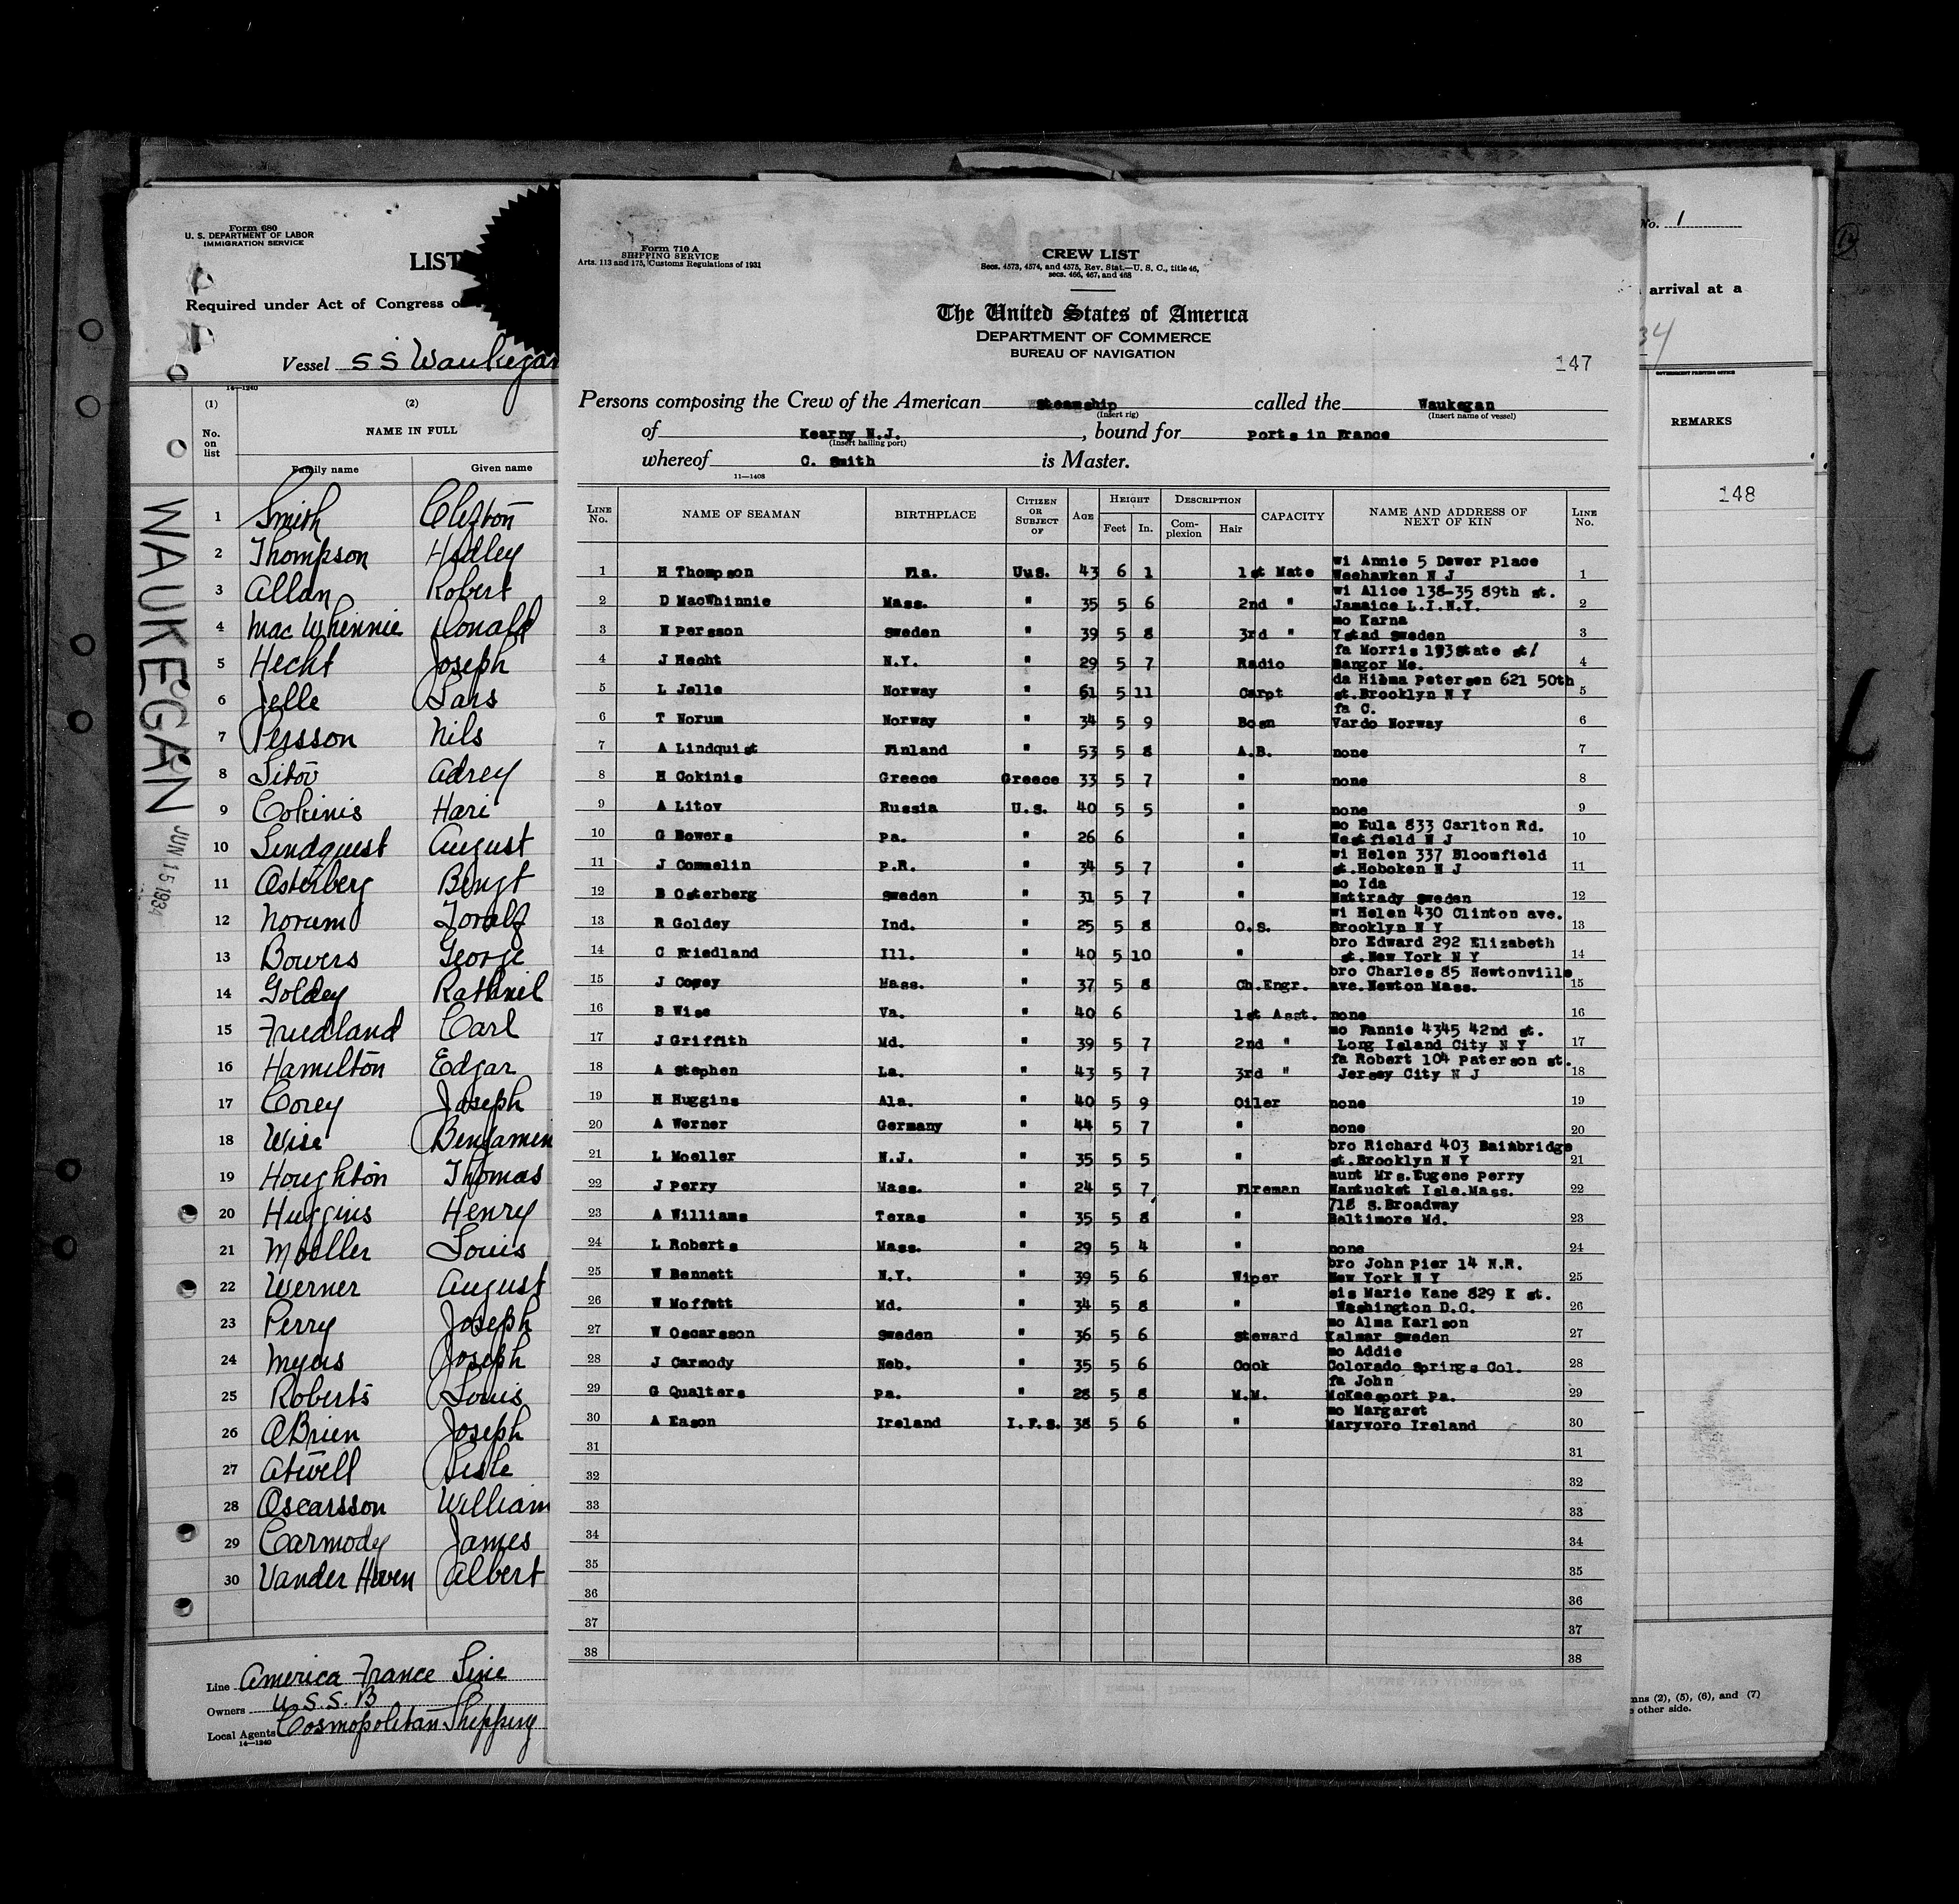 Form 680
U. S. DEPARTMENT OF LABOR
IMMIGRATION SERVICE
LIST
Required under Act of Congress
Vessel S S Waukegan
14—1240
(1) (2)
No. on list
NAME IN FULL
Family name Given name
1 Smith Clifton
2 Thompson Hadley
3 Allan Robert
4 MacWhinnie Donald
5 Hecht Joseph
6 Jelle Lars
7 Persson Nils
8 Litov Adrey
9 Cokinis Hari
10 Lindquist August
11 Osterberg Bengt
12 Norum Toralf
13 Bowers George
14 Goldey Rathnil
15 Friedland Carl
16 Hamilton Edgar
17 Corey Joseph
18 Wise Benjamin
19 Houghton Thomas
20 Huggins Henry
21 Moeller Louis
22 Werner August
23 Perry Joseph
24 Myers Joseph
25 Roberts Louis
26 OBrien Joseph
27 Atwell Lisle
28 Oscarsson William
29 Carmody James
30 Vander Haven Albert
Line America France Line
Owners U.S.S.B
Local Agents Cosmopolitan Shipping
14—1240
WAUKEGAN
JUN 15 1934
Form 710 A
SHIPPING SERVICE
Arts. 113 and 175, Customs Regulations of 1931
CREW LIST
Secs. 4573, 4574, and 4575, Rev. Stat.—U. S. C., title 46,
secs. 466, 467, and 468
The United States of America
DEPARTMENT OF COMMERCE
BUREAU OF NAVIGATION
147
Persons composing the Crew of the American Steamship called the Waukegan
(Insert rig) (Insert name of vessel)
of Kearny N.J. , bound for Ports in France
(Insert hailing port)
whereof C. Smith is Master.
11—1408
LINE No. NAME OF SEAMAN BIRTHPLACE CITIZEN OR SUBJECT OF AGE HEIGHT Feet In. DESCRIPTION Complexion Hair CAPACITY NAME AND ADDRESS OF NEXT OF KIN LINE No.
1 H Thompson Fla. UuS. 43 6 1 1st Mate wi Annie 5 Dewer Place Weehawken N J 1
2 D MacWhinnie Mass. " 35 5 6 2nd " wi Alice 138-35 89th st. Jamaice L.I.N.Y. 2
3 N Persson Sweden " 39 5 8 3rd " mo Karna Ystad Sweden 3
4 J Hecht N.Y. " 29 5 7 Radio fa Morris 193 State st/ Bangor Me. 4
5 L Jelle Norway " 61 5 11 Carpt da Hilma Petersen 621 50th st.Brooklyn N Y 5
6 T Norum Norway " 34 5 9 Bosn fa C. Vardo Norway 6
7 A Lindquist Finland " 53 5 8 A.B. none 7
8 H Cokinis Greece Greece 33 5 7 " none 8
9 A Litov Russia U.S. 40 5 5 " none 9
10 G Bowers Pa. " 26 6 " mo Eula 833 Carlton Rd. Westfield N J 10
11 J Commelin P.R. " 34 5 7 " wi Helen 337 Bloomfield st.Hoboken N J 11
12 B Osterberg Sweden " 31 5 7 " mo Ida Nattrady Sweden 12
13 R Goldey Ind. " 25 5 8 O.S. wi Helen 430 Clinton ave. Brooklyn N Y 13
14 C Friedland Ill. " 40 5 10 " bro Edward 292 Elizabeth st.New York N Y 14
15 J Corey Mass. " 37 5 8 Ch.Engr. bro Charles 85 Newtonville ave.Newton Mass. 15
16 B Wise Va. " 40 6 1st Asst. none 16
17 J Griffith Md. " 39 5 7 2nd " mo Fannie 4345 42nd st. Long Island City N Y 17
18 A Stephen La. " 43 5 7 3rd " fa Robert 104 Paterson st. Jersey City N J 18
19 H Huggins Ala. " 40 5 9 Oiler none 19
20 A Werner Germany " 44 5 7 " none 20
21 L Moeller N.J. " 35 5 5 " bro Richard 403 Bainbridge st.Brooklyn N Y 21
22 J Perry Mass. " 24 5 7 Fireman aunt Mrs.Eugene Perry Nantucket Isle.Mass. 22
23 A Williams Texas " 35 5 8 " 718 S.Broadway Baltimore Md. 23
24 L Roberts Mass. " 29 5 4 " none 24
25 W Bennett N.Y. " 39 5 6 Wiper bro John Pier 14 N.R. New York N Y 25
26 W Moffett Md. " 34 5 8 " sis Marie Kane 829 K st. Washington D.C. 26
27 W Oscarsson Sweden " 36 5 6 Steward mo Alma Karlson Kalmar Sweden 27
28 J Carmody Neb. " 35 5 6 Cook mo Addie Colorado Springs Col. 28
29 G Qualters Pa. " 28 5 8 M.M. fa John McKeesport Pa. 29
30 A Eason Ireland I.F.S. 38 5 6 " mo Margaret Maryvoro Ireland 30
31 31
32 32
33 33
34 34
35 35
36 36
37 37
38 38
No. 1
arrival at a
34
GOVERNMENT PRINTING OFFICE
REMARKS
148
mns (2), (5), (6), and (7)
other side.